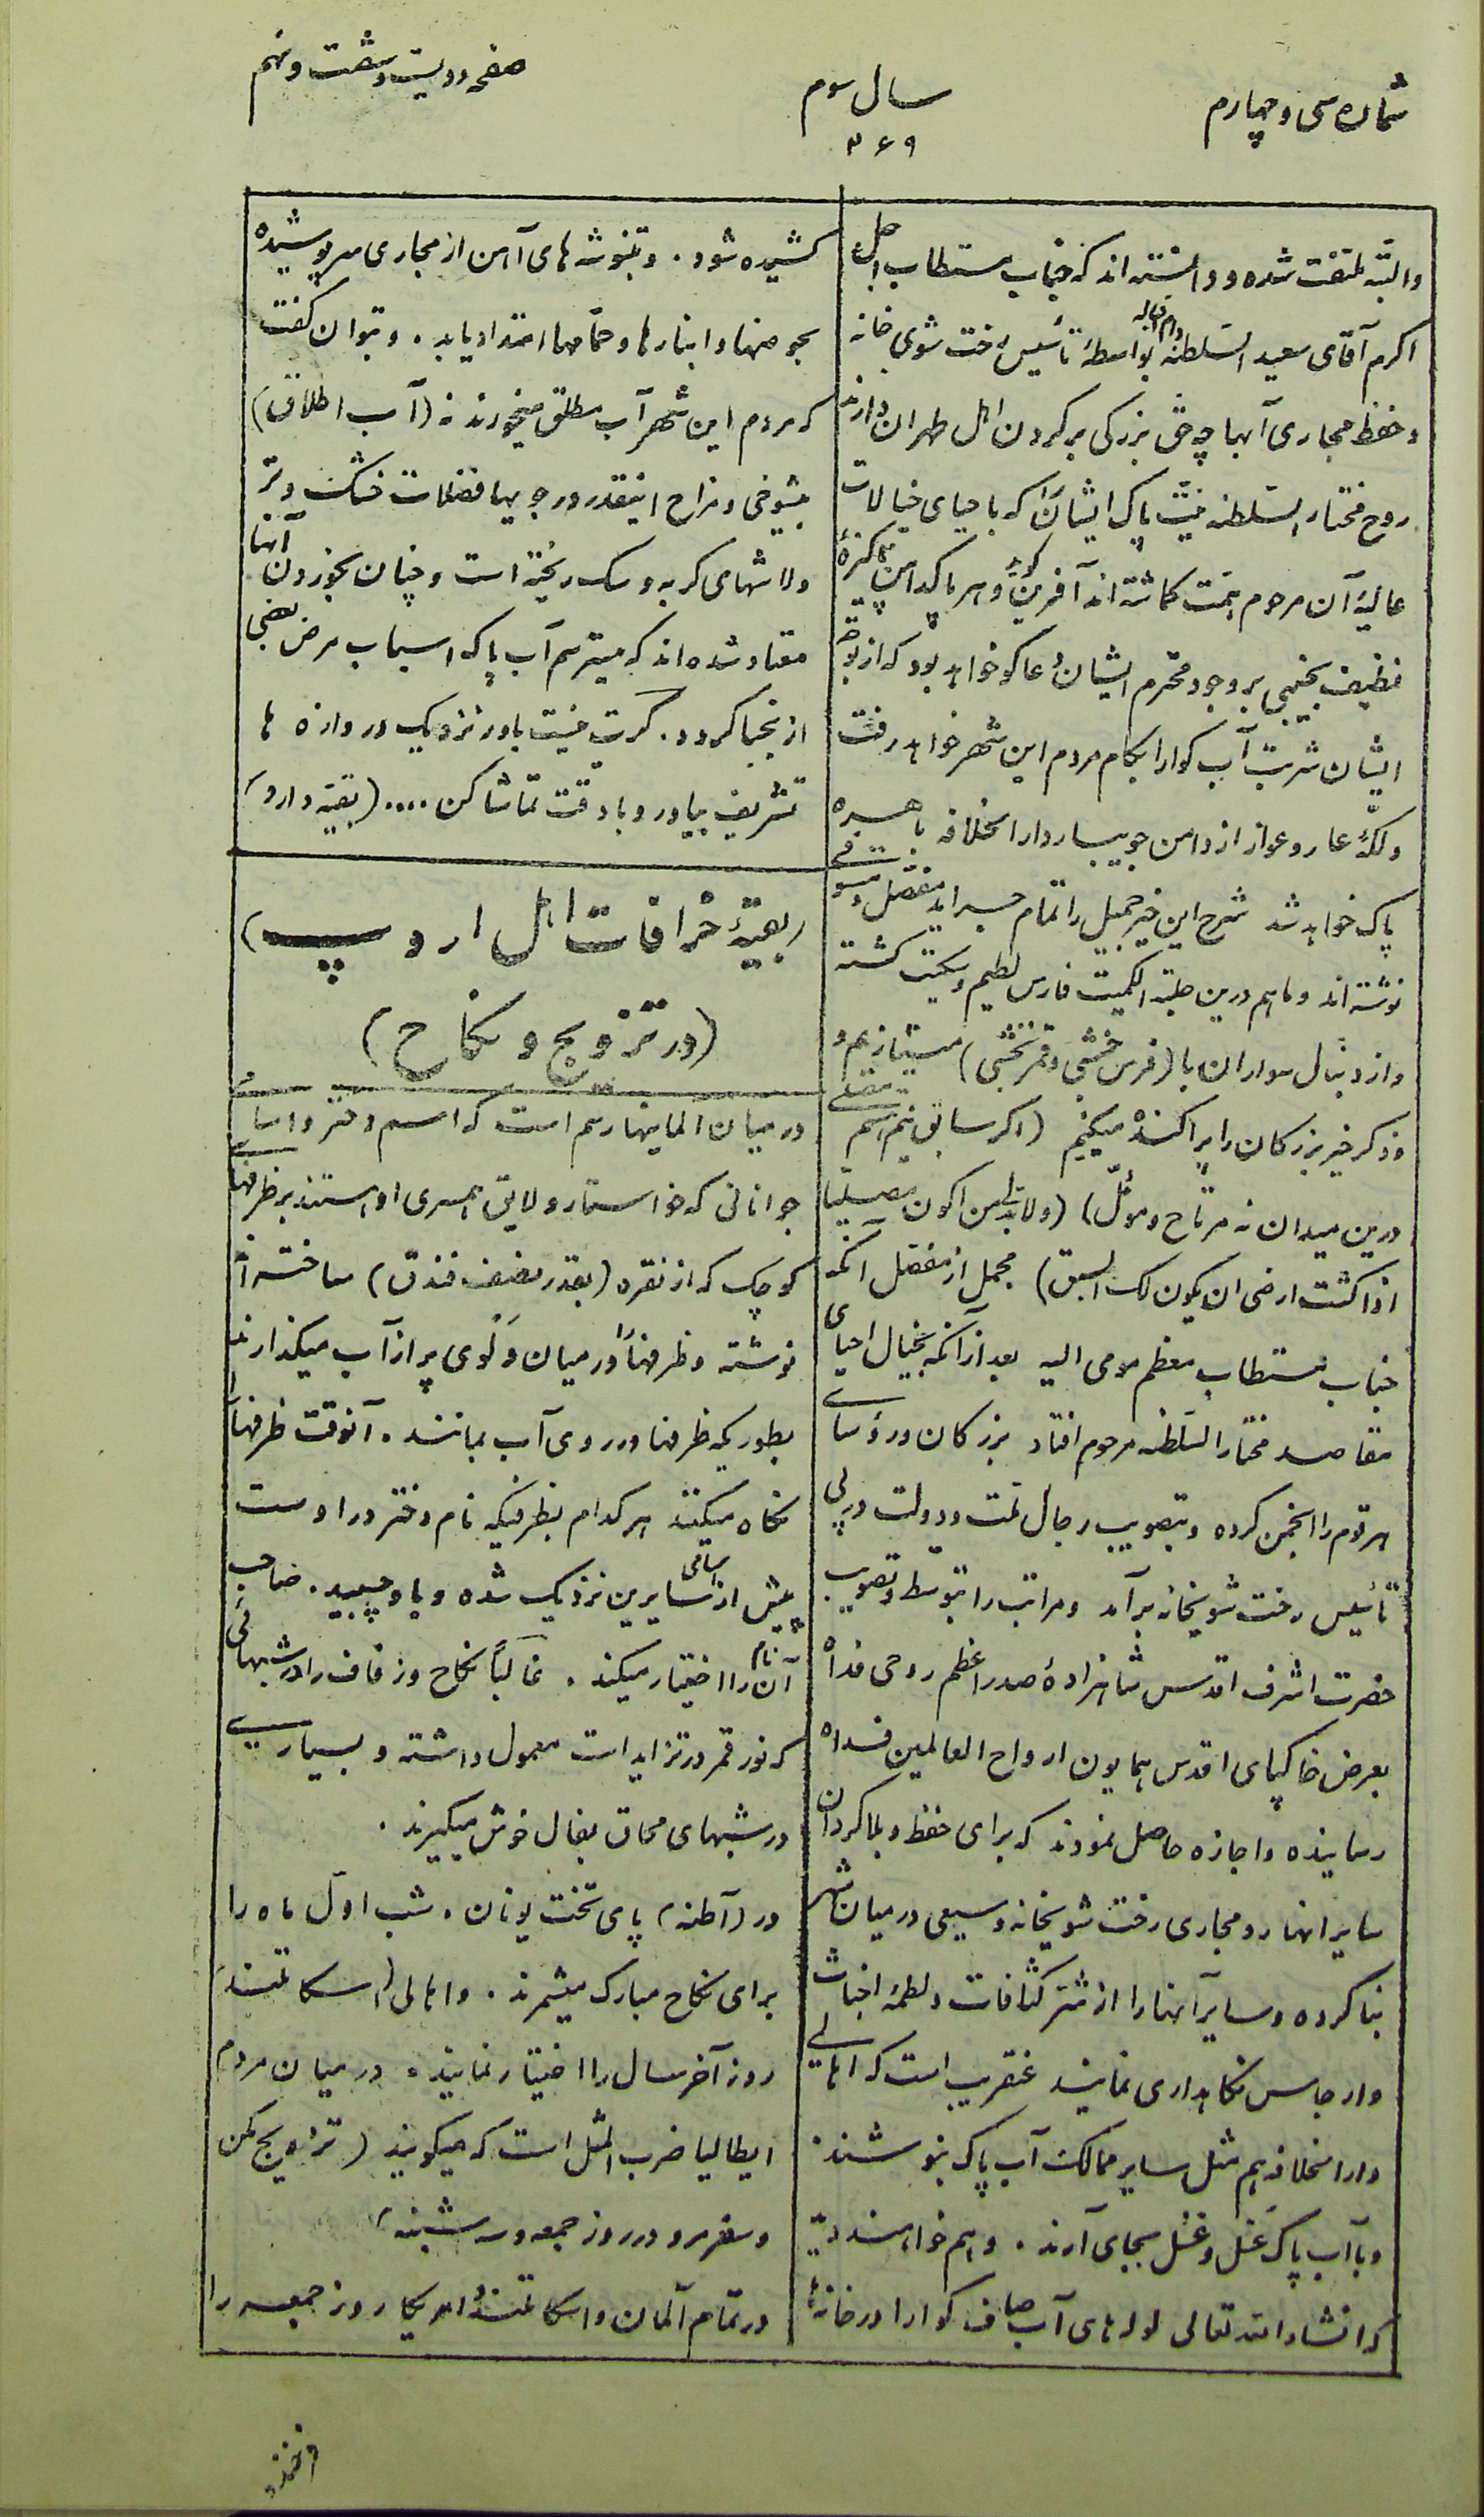 شماره سی و چهارم
سال سوم
۲۶۹
صفحه دویست و شصت و نهم
والبتّه ملتفت شده و دانسته اند که جناب مستطاب اجل
اکرم آقای سعید السّلطنه دام اقباله بواسطهٔ تأسیس رخت شوی خانه
و حفظ مجاری آبها چه حق بزرگی بر گردن اهل طهران دارند
روح مختار السّلطنه نیّت پاک ایشانرا که با حیای خیالات
عالیهٔ آن مرحوم همّت گماشته اند آفرین گوید و هر پاکدامن پاکیزهٔ
نظیف بجنبی بر وجود محترم ایشان دعا گو خواهد بود که از توجه
ایشان شربت آب گوارا بکام مردم این شهر خواهد رفت
ولکّهٔ عار و عوار از دامن جویبار دارالخلافه باهره
پاک خواهد شد شرح این خبر جمیل را تمام جراید مفصل و مستوفی
نوشته اند و ما هم درین حلبة الکمیت فارس لطیم و سکیت گشته
و از دنبال سواران با (فرس خشبی و قمر نخشبی) میتازیم و
و ذکر خیر بزرگان را پراکنده میکنیم (اگر سابق نیم اسم
درین میدان نه مرتاح و مومّل) (ولا بد لمن اکون مصلیا
اذا کنت ارضی ان یکون لک السبق) مجمل از مفصّل آنکه
جناب مستطاب معظم مومی الیه بعد از آنکه بخیال احیای
مقاصد مختار السّلطنه مرحوم افتاد بزرگان و رؤسای
هر قوم را انجمن کرده و بتصویب رجال ملّت و دولت در پی
تأسیس رخت شویخانه برآمد و مراتب را بتوسّط و تصویب
حضرت اشرف اقدس شاهزادهٔ صدر اعظم روحی فداه
بعرض خاکپای اقدس همایون ارواح العالمین فداه
رسانیده و اجازه حاصل نمودند که برای حفظ و بلاگردان
سایر انهار و مجاری رخت شویخانه وسیعی در میان شهر
بنا کرده و سایر آبها را از شتر کثافات و لطمهٔ اخباث
و ارجاس نگاهداری نمایند عنقریب است که اهالی
دارالخلافه هم مثل سایر ممالک آب پاک بنوشند.
و با آب پاک غَسل و غُسل بجای آرند. و هم خواهند دید
که انشاء الله تعالی لوله های آب صاف گوارا در خانهٔ
کشیده شود. و تنبوشه های آهن از مجاری سرپوشیده
بحوضها و انبارها و حمّامها امتداد یابد. و بتوان گفت
که مردم این شهر آب مطلق میخورند نه (آب اطلاق)
بیشوخی و مزاح اینقدر در جویها فضلات خشک و تر
ولاشهای گربه و سک ریخته است و چنان بخوردن آنها
معتاد شده اند که میترسم آب پاک اسباب مرض بعضی
از نجبا گردد. گرت نیست باور نزدیک دروازه ها
تشریف بیاور و با دقت تماشا کن.... (بقیّه دارد)
(بقیّهٔ خرافات اهل اروپ)
(در تزویج و نکاح)
در میان المانیها رسم است که اسم دختر و اسامی
جوانانی که خواستار و لایق همسری او هستند بر ظرفهای
کوچک که از نقره (بقدر نصف فندق) ساخته اند
نوشته و ظرفها را در میان دَلوی پر از آب میگذارند
بطوریکه ظرفها در روی آب بمانند. آنوقت ظرفها را
نگاه میکنند هر کدام بظرفیکه نام دختر در اوست
پیش از اسامی سایرین نزدیک شده و باو چسبید. صاحب
آن نام را اختیار میکند. غالبًا نکاح و زفاف را در شبهائی
که نور قمر در تزاید است معمول داشته و بسیاری
در شبهای محاق بفال خوش میگیرند.
در (آطنه) پای تخت یونان. شب اوّل ماه را
برای نکاح مبارک میشمرند. و اهالی (اسکاتلند)
روز آخر سال را اختیار نمایند. در میان مردم
ایطالیا ضرب المثل است که میگویند (تزویج مکن
و سفر مرو در روز جمعه و سه شنبه)
در تمام آلمان و اسکاتلند و امریکا روز جمعه را